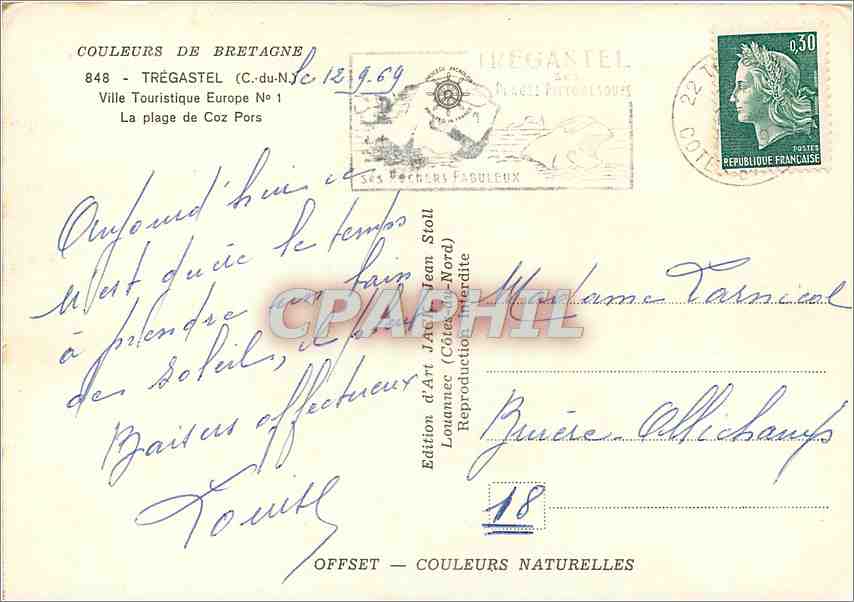 COULEURS DE BRETAGNE
848 - TRÉGASTEL (C.-du-N.)
Ville Touristique Europe No 1
La plage de Coz Pors
le 12.9.69
TRÉGASTEL
SES
PLAGES PITTORESQUES
SES ROCHERS FABULEUX
22
COTES
0,30
POSTES
REPUBLIQUE FRANÇAISE
Aujourd'hui ce
n'est guère le temps
à prendre un bain
des soleils, il pleut
Baisers affectueux
Louise
Edition d'Art JACK Jean Stoll
Louannec (Côtes-du-Nord)
Reproduction Interdite
CPAPHIL
Madame Tarnicol
Bruère-Allichamps
18
OFFSET — COULEURS NATURELLES